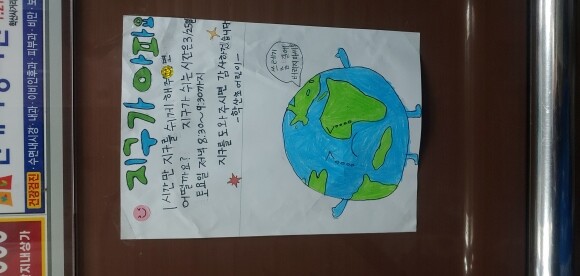 지구가 아파요
1시간만 지구를 쉬게 해주면
어떨까요? 지구가 쉬는시간은 3/25일
토요일 저녁 8:30~9:30까지
지구를 도와주시면 감사하겠습니다
-학산초 어린이-
건강검진
수면내시경·내과·이비인후과·피부과·비만
지내상가